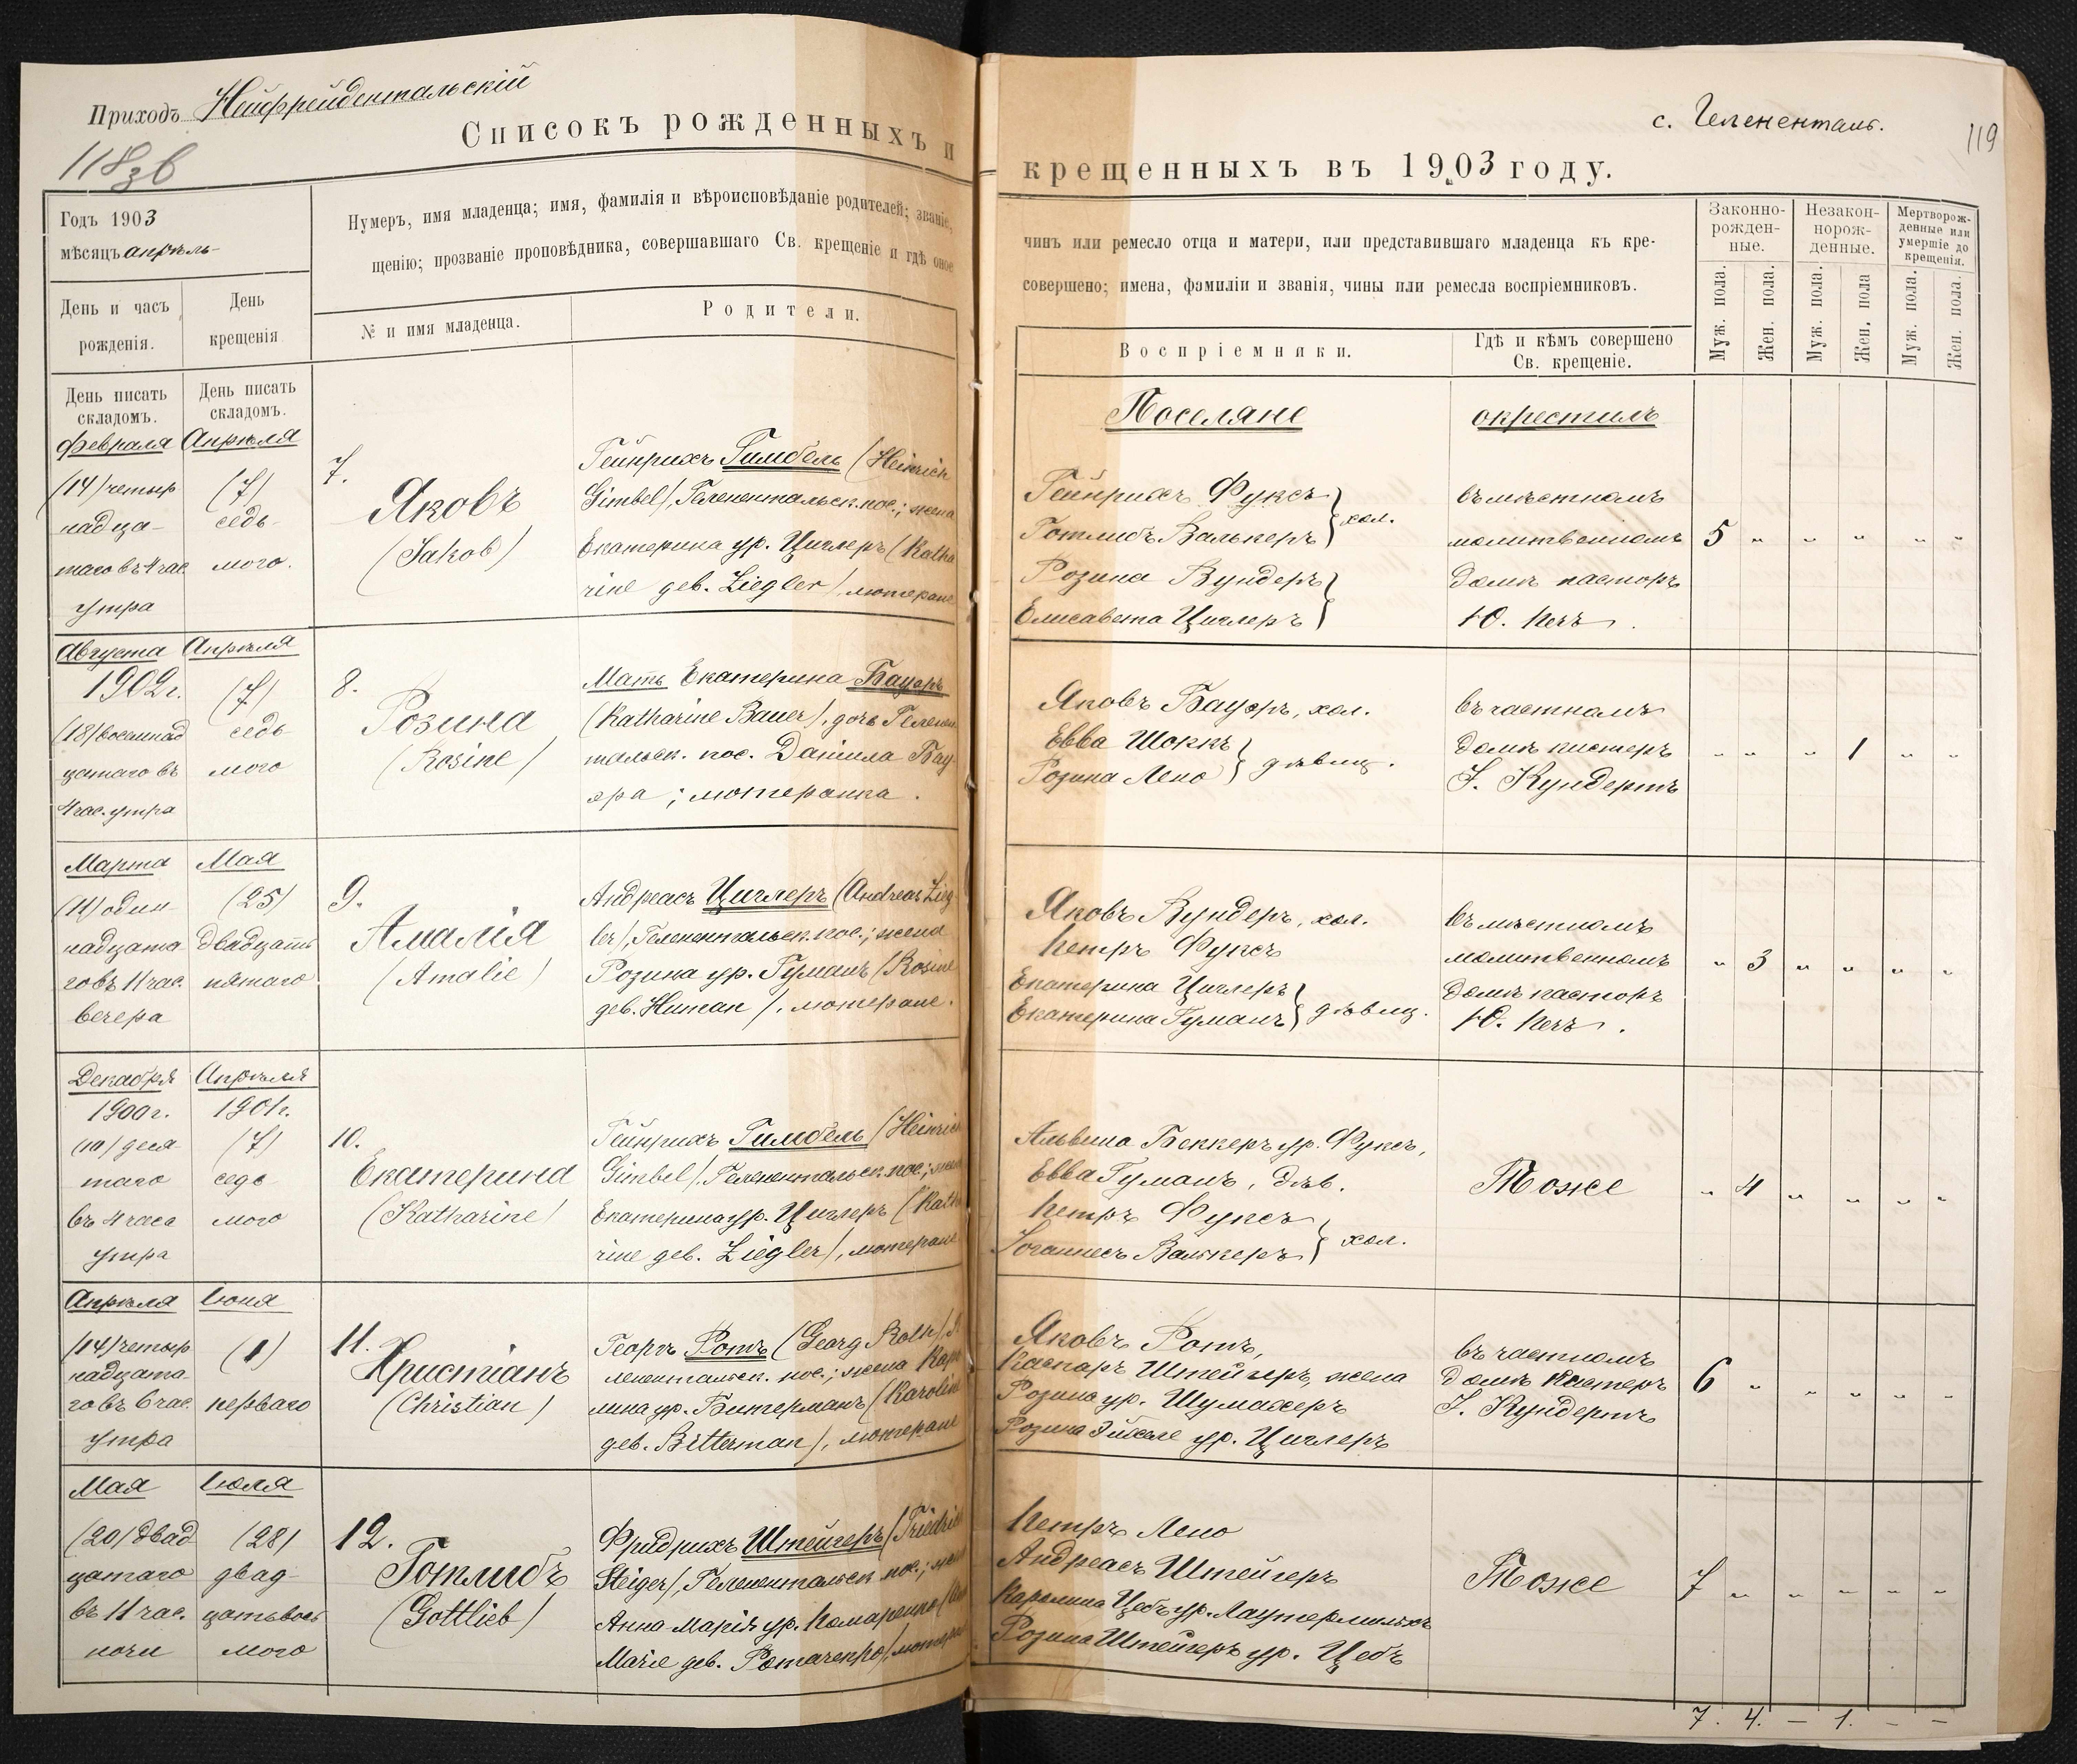 Приходъ Нейфрейдентальскій
118 зв
Списокъ рожденныхъ и
Годъ 1903
мѣсяцъ апрѣль
Нумеръ, имя младенца; имя, фамилія и вѣроисповѣданіе родителей; званіе,
щенію; прозваніе проповѣдника, совершавшаго Св. крещеніе и гдѣ оное
День и часъ рожденія.
День крещенія
№ и имя младенца.
Родители.
День писать складомъ.
День писать складомъ.
Февраля
(14) четыр
надца-
таго въ 4 час.
утра
Апрѣля
(7)
седь-
мого.
7.
Яковъ
(Jakob)
Гейнрихъ Гимбель (Heinrich
Gimbel), Геленентальск. пос.; жена
Екатерина ур. Циглеръ (Katha
rine geb. Ziegler), лютеране
Августа
1902 г.
(18) восемнад
цатаго въ
4 час. утра
Апрѣля
(7)
седь
мого
8.
Розина
(Rosine)
Мать Екатерина Бауэръ
(Katharine Bauer), дочь Геленен
тальск. пос. Даніила Бау-
эра; лютеранка.
Марта
(11) один-
надцата
го въ 11 час.
вечера
Мая
(25)
двадцать
пятаго
9.
Амалія
(Amalie)
Андреасъ Циглеръ (Andreas Zieg
ler), Гелененальск. пос.; жена
Розина ур. Гуманъ (Rosine
geb. Human), лютеране.
Декабря
1900 г.
(10) деся-
таго
въ 4 часа
утра
Апрѣля
1901 г.
(7)
седь
мого
10.
Екатерина
(Katharine)
Гейнрихъ Гимбель (Heinrich
Gimbel), Гелененальск. пос.; жена
Екатерина ур. Циглеръ (Katha
rine geb. Ziegler), лютеране
Апрѣля
(14) четыр
надцата-
го въ 6 час.
утра
Іюня
(1)
перваго
11.
Христіанъ
(Christian)
Георгъ Ротъ (Georg Roth),
лененальск. пос.; жена Каро
лина ур. Битерманъ (Karoline
geb. Bitterman), лютеране
Мая
(20) двад
цатаго
въ 11 час.
ночи
Іюля
(28)
двад-
цать вось
мого
12.
Готлибъ
(Gottlieb)
Фридрихъ Штейгеръ (Friedrich
Steiger), Гелененальск. пос.; жена
Анна Марія ур.
Marie geb.
с. Гелененталь.
119
крещенныхъ въ 1903 году.
чинъ или ремесло отца и матери, или представившаго младенца къ кре-
совершено; имена, фамиліи и званія, чины или ремесла воспріемниковъ.
Воспріемники.
Гдѣ и кѣмъ совершено Св. крещеніе.
Законно-рожден-ные.
Незакон-норож-денные.
Мертворож-денные или умершіе до крещенія.
Муж. пола.
Жен. пола.
Муж. пола.
Жен. пола
Муж. пола.
Жен. пола.
Поселяне
окрестилъ
Гейнрихъ Фуксъ
Готлибъ Валькеръ } хол.
Розина Вундеръ
Елисавета Циглеръ
въ мѣстномъ
молитвенномъ
домѣ пасторъ
Ю. Печъ.
5 „ „ „ „ „
Яковъ Бауэръ, хол.
Евва Шокъ
Розина Лено } дѣвиц.
въ частномъ
домѣ кистеръ
І. Кундертъ
„ „ „ 1 „ „
Яковъ Вундеръ, хол.
Петръ Фуксъ
Екатерина Циглеръ
Екатерина Гуманъ } дѣвиц.
въ мѣстномъ
молитвенномъ
домѣ пасторъ
Ю. Печъ.
„ 3 „ „ „ „
Альвина Беккеръ ур. Фуксъ,
Евва Гуманъ, дѣв.
Петръ Фуксъ
Іоганнесъ Валькеръ } хол.
Тоже
„ 4 „ „ „ „
Яковъ Ротъ,
Каспаръ Штейгеръ, жена
Розина ур. Шумахеръ
Розина ур. Циглеръ
въ частномъ
домѣ кистеръ
І. Кундертъ
6 „ „ „ „ „
Петръ Лено
Андреасъ Штейгеръ
Каролина Цебъ ур. Лаутермильхъ
Розина Штейгеръ ур. Цебъ
Тоже
7 „ „ „ „ „
7. 4. — 1. — —